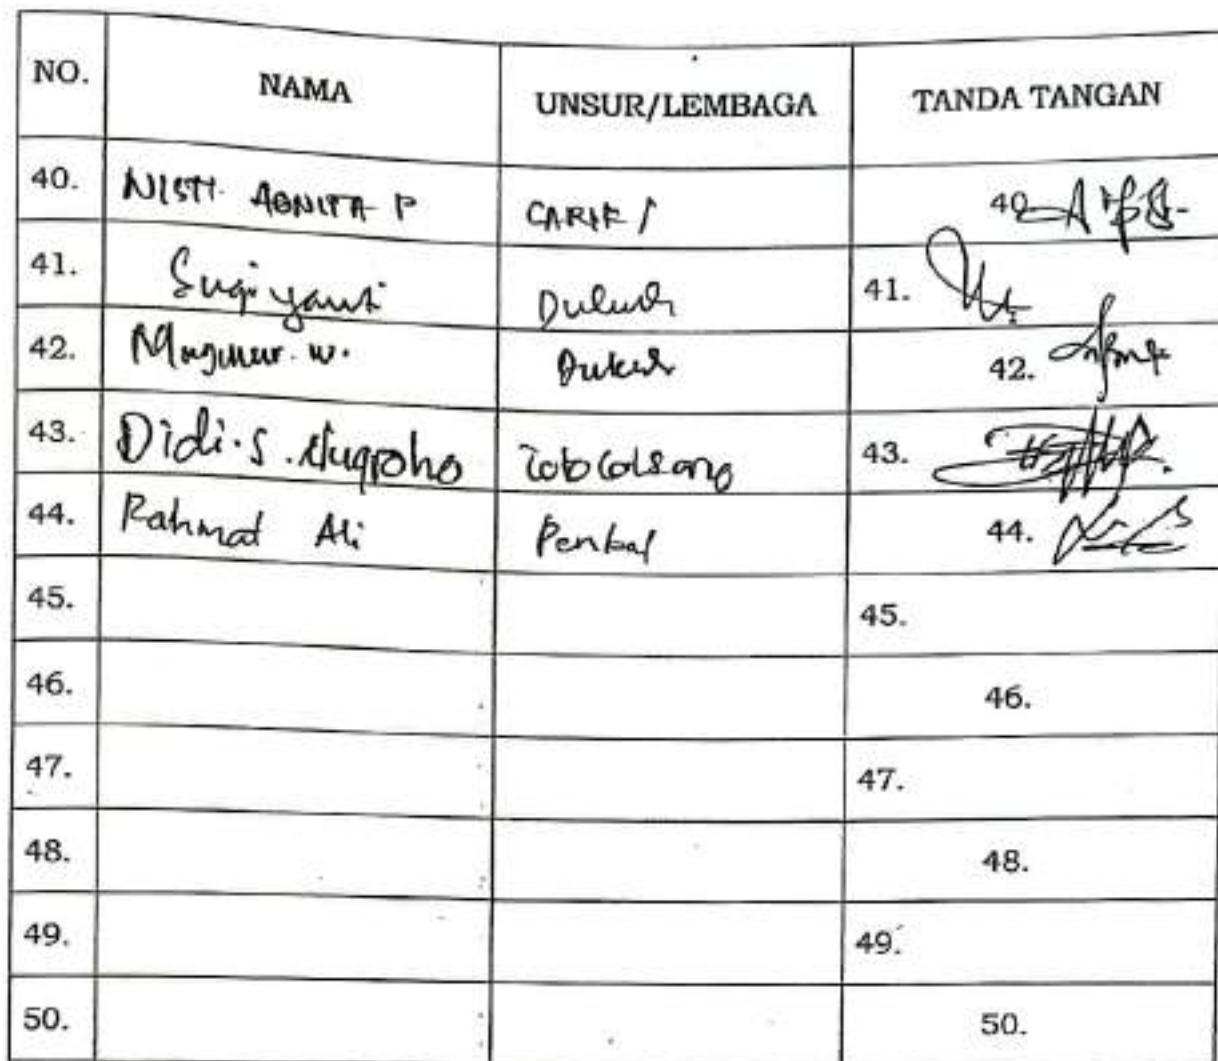 NO. NAMA UNSUR/LEMBAGA TANDA TANGAN
40. NISTI AGNITA P CARIK / 40.
41. Sugiyanti Dukuh 41.
42. W. Dukuh 42.
43. Didi.S.Nugroho 43.
44. Rahmat Ali 44.
45. 45.
46. 46.
47. 47.
48. 48.
49. 49.
50. 50.